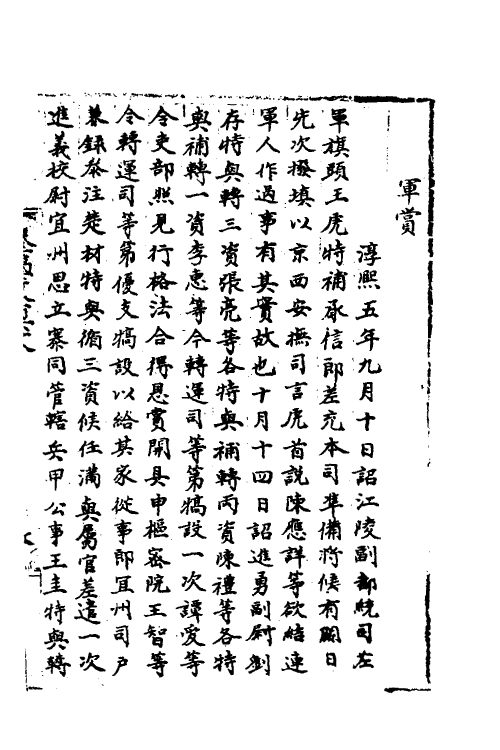 軍賞
淳熙五年九月十日詔江陵副都統司左
軍旗頭王虎特補承信郎差充本司準備將候有闕日
先次撥填以京西安撫司言虎首說陳應詳等欲結連
軍人作過事有其實故也十月十四日詔進勇副尉劉
存特與轉三資張亮等各特與補轉丙資陳禮等各特
與補轉一資李惠等令轉運司等第犒設一次譚愛等
令吏部照見行格法合得恩賞開具申樞密院王智等
令轉運司等第優支犒設以給其家從事郎宜州司戶
兼錄參注楚材特與循三資候任滿與屬官差遣一次
進義校尉宜州思立寨同管轄兵甲公事王圭特與轉